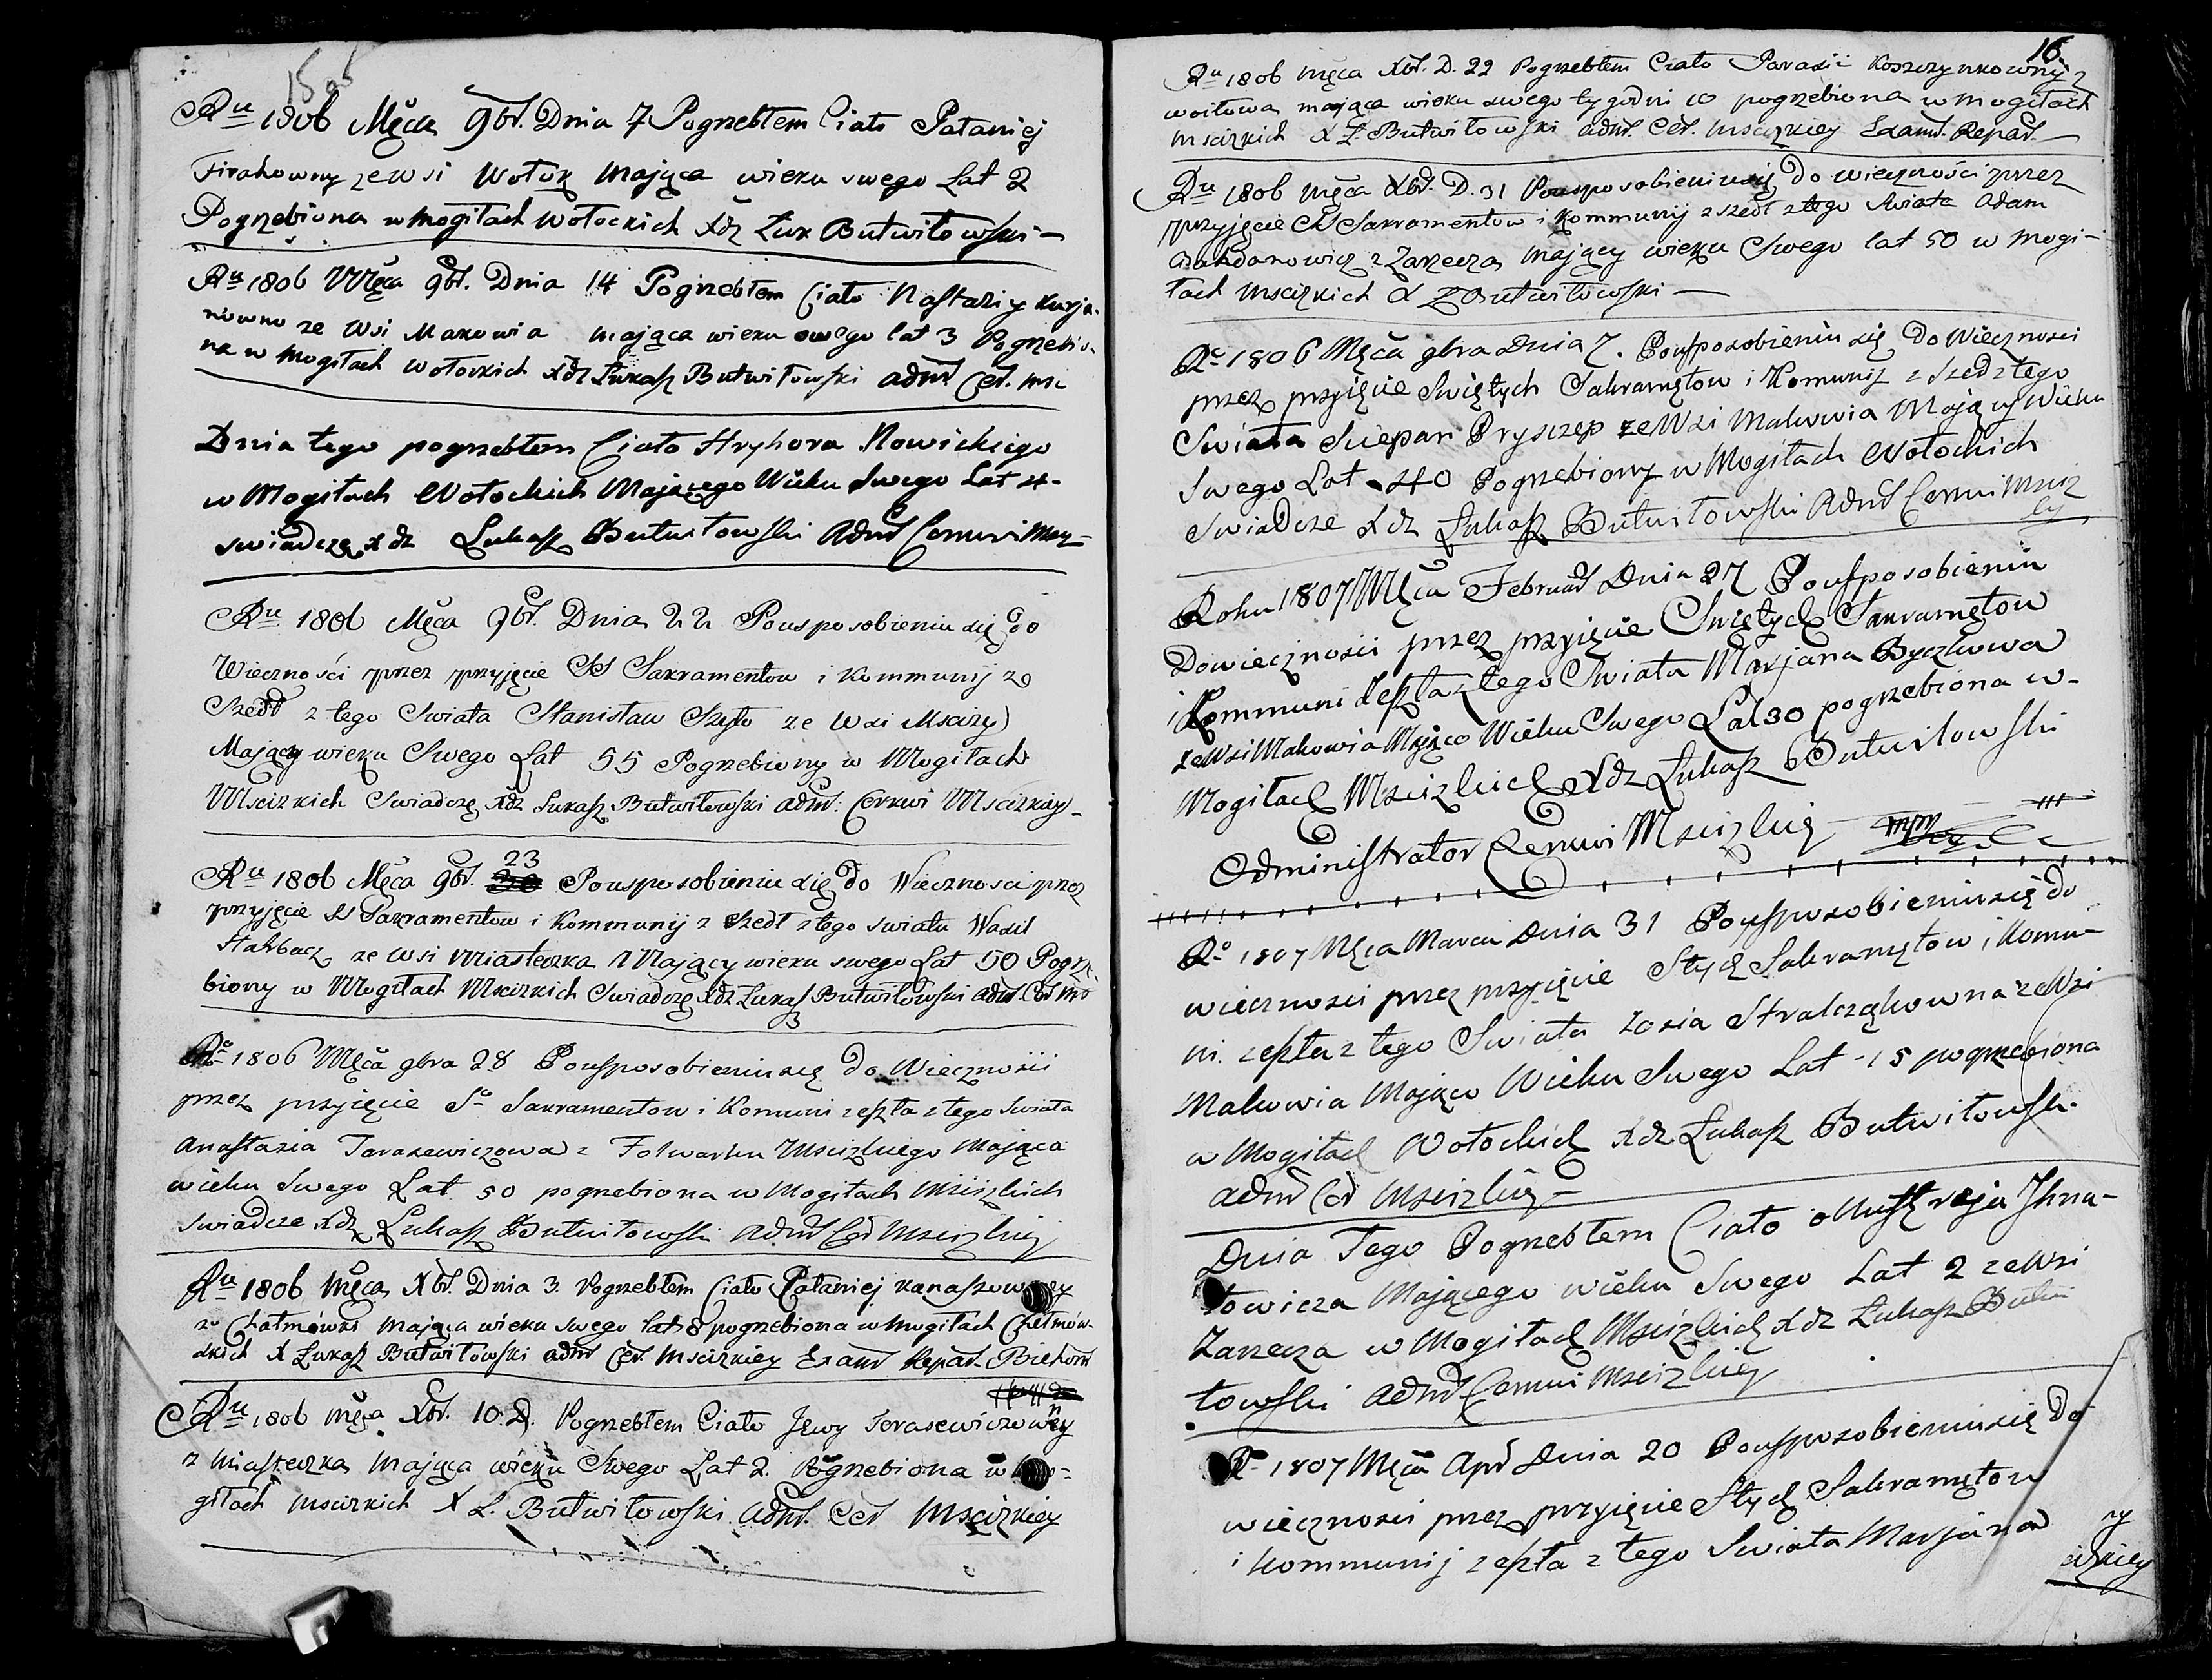 1806
Ru 1806 Męca 9br. Dnia 7 Pogrzebłem Ciało Pałaniej
Firahowny ze wsi Wołok mająca wieku swego Lat 2
Pogrzebiona w mogiłach Wołockich Xdz Łuk Butwiłowski
Ru 1806 Męca 9br. Dnia 14 Pogrzebłem Ciało Nastaziy Kurja-
nowno ze Wsi Makowia mająca wieku swego lat 3 Pogrzebio-
na w mogiłach Wołockich Xdz Łukasz Butwiłowski adm Cer. Mści
Dnia tego pogrzebłem Ciało Hryhora Nowickiego
w Mogiłach Wołockich Mającego Wieku Swego Lat 4-
swiadczę xdz Łukasz Butwiłowski Adm Cerkwi Mszy-
Ru 1806 Męca 9br. Dnia 22 Pousposobieniu się do
Wieczności przez przyjęcie SS Sakramentow i Kommunij ze
Szedł z tego Swiata Stanisław Szyło ze Wsi Msciży
Mający wieku Swego Lat 55 Pogrzebiony w Mogiłach
Mścizkich Swiadczę Xdz Łukasz Butwiłowski adm. Cerkwi Mscizkiey-
Ru 1806 Męca 9br. 23 Pousposobieniu się do Wiecznosci przez
przyjęcie SS Sakramentow i Kommunij z szedł z tego swiata Wasil
Harbacz ze wsi Miasteczka Mający wieku swego Lat 50 Pogrze-
biony w Mogiłach Mscizkich Swiadczę Xdz Łukasz Butwiłowski adm. Cer Ms
3
Ro 1806 Męca 9bra 28 Pousposobieniu się do Wiecznosii
przez przyięcie So Sakramentow i Komuni zeszła z tego Swiata
Anastazia Tarasewiczowa z Folwarku Mscizkiego Mająca
wieku Swego Lat 50 pogrzebiona w Mogiłach Mscizkich
Swiadcze xdz Łukasz Butwiłowski Adm Cer Mscizkiey
Ru 1806 Męca Xbr. Dnia 3. Pogrzebłem Ciało Pałaniej Kanaszow
ze Chałmówki mająca wieku swego lat 8 pogrzebiona w mogiłach Chełmów-
skich X Łukasz Butwiłowski adm Cer. Mscizkiey Exam Repar.
Ru 1806 Męca Xbr. 10 D. Pogrzebłem Ciało Jewy Tarasewiczowny
z Miasteczka mająca wieku Swego Lat 2. Pogrzebiona w Mo-
giłach Mscizkich X Ł. Butwiłowski. Adm. Cer Mscizkiey
16.
Ru 1806 Męca Xbr. D. 22 Pogrzebłem Ciało Parasii Koszczynkowny z
woiłowa mająca wieku swego tygodni 10 pogrzebiona w mogiłach
Mscizkich X Ł Butwiłowski adm. Cer. Mscizkiey Exam. Repar.
Ru 1806 Męca Xbr. D. 31 Pousposobieniu się do wieczności przez
przyjęcie SS Sakramentow i Kommunij z szedł z tego Swiata Adam
Bahdanowicz z Zarzecza mający wieku Swego lat 50 w mogi-
łach Mscizkich X Ł Butwiłowski
Ro 1806 Męca 9bra Dnia 7. Pousposobieniu się Do Wiecznosci
przez przyięcie Swiętych Sakramętow i Komunij z szed z tego
Swiata Sciepan Pryszczep ze Wsi Makowia Mający Wieku
Swego Lat 40 Pogrzebiony w Mogiłach Wołockich
Swiadcze Xdz Łukasz Butwiłowski Adm Cerkwi Msciz
ky
Roku 1807 Męca Februar Dnia 27 Pousposobieniu
Dowiecznosci przez przyięcie Swiętych Sakramętow
i Kommuni zeszła z tego Swiata Marjana Byczkowa
ze Wsi Makowia Mająca Wieku Swego Lat 30 pogrzebiona w-
Mogiłach Mscizkich Xdz Łukasz Butwiłowski
Administrator Cerkwi Mscizkiy mpp
Ro 1807 Męca Marca Dnia 31 Pousposobieniu się do
wiecznosci przez przyięcie Stych Sakramętow i Komu-
ni. zeszła z tego Swiata Zosia Stralczękowna ze Wsi
Makowia Mająca Wieku Swego Lat 15 pogrzebiona
w Mogiłach Wołockich xdz Łukasz Butwiłowski
adm Cer Mscizkiy
Dnia Tego Pogrzebłem Ciało Ihna-
towicza Mającego wieku Swego Lat 2 ze Wsi
Zarzecza w Mogiłach Mscizkich xdz Łukasz Butwi
łowski adm Cerkwi Mscizkiey
Ro 1807 Męca Apr Dnia 20 Pousposobieniu się do
wiecznosci przez przyięcie Stych Sakramętow
i Kommunij zeszła z tego Swiata Marjana